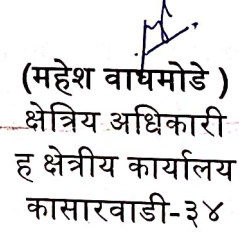 (महेश वाघमोडे )
क्षेत्रिय अधिकारी
ह क्षेत्रीय कार्यालय
कासारवाडी-३४